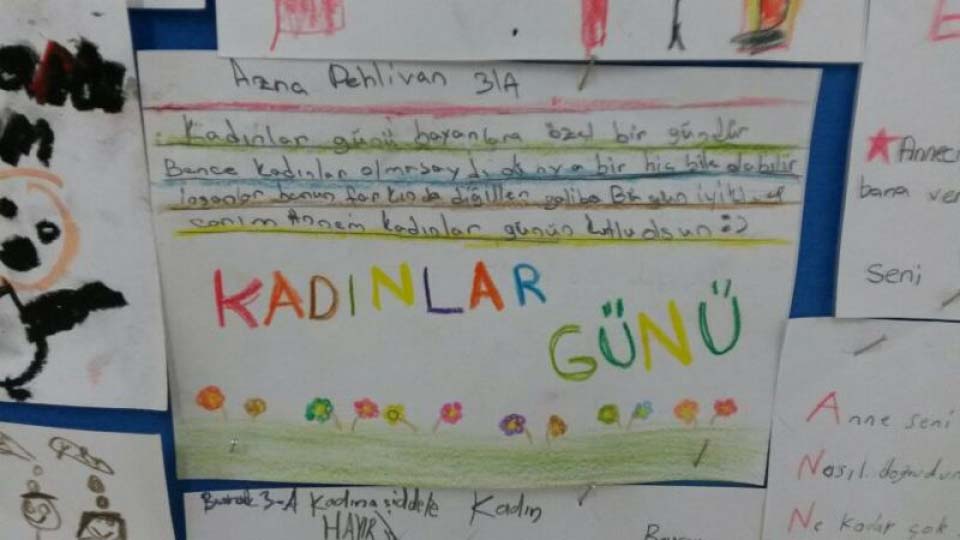 Azna Pehlivan 3/A
Kadınlar günü bayanlara özel bir gündür
Bence kadınlar olmasaydı dünya bir hiç bile olabilir
insanlar bunun farkında diğiller galiba Bu gün iyiki
canım Annem kadınlar günün kutlu olsun :)
KADINLAR
GÜNÜ
Burak 3-A Kadına şiddete Kadın
HAYIR
Anneci
bana ver
Seni
Anne seni
Nasıl doğurdun
Ne kadar çok